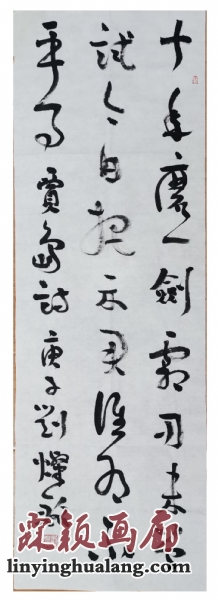 十年磨一劍霜刃未曾
試今日把示君誰有不
平事 賈島詩 庚子劉燦
颖画廊
linyinghualang.com